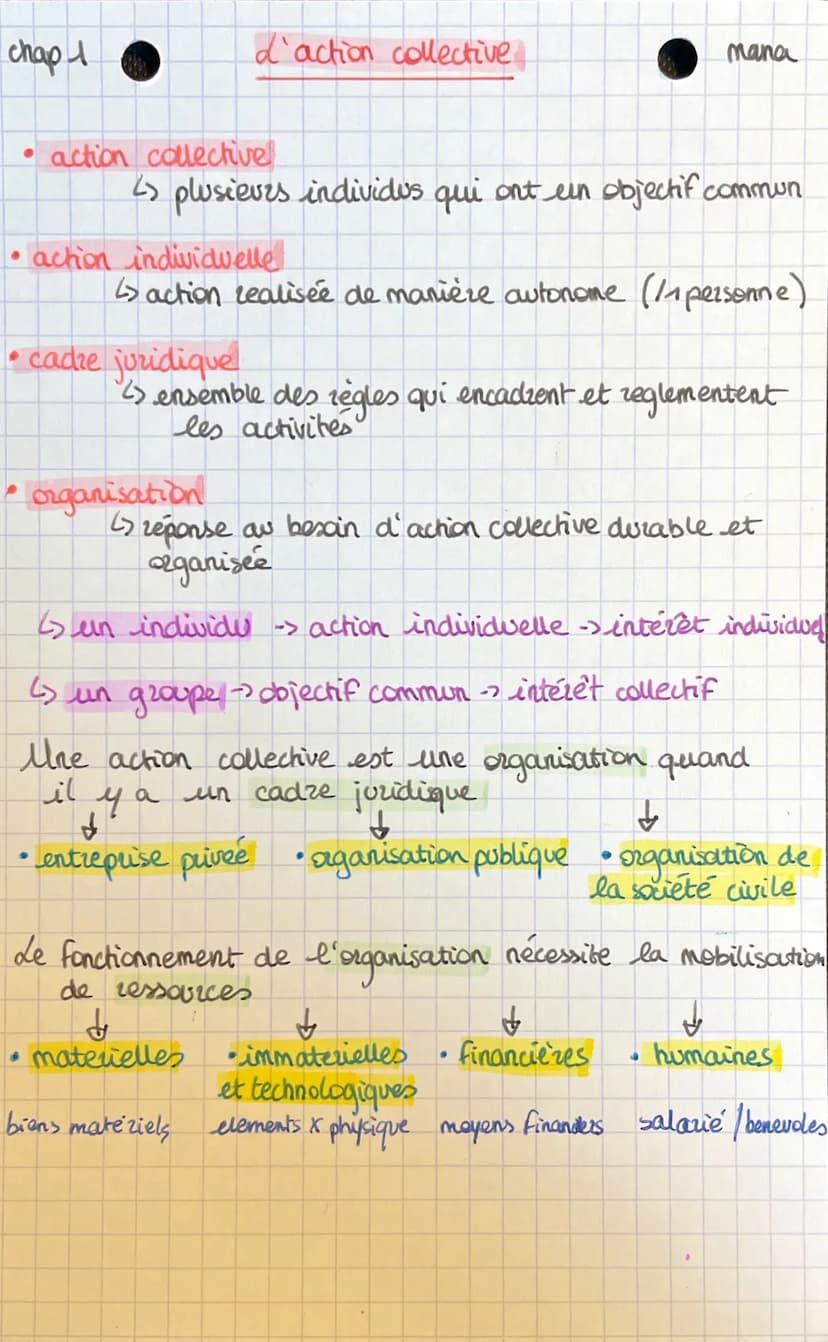 chap 1 d'action collective mana
• action collective
↳ plusieurs individus qui ont un objectif commun
• action individuelle
↳ action realisée de manière autonome (/1 personne)
• cadre juridique
↳ ensemble des règles qui encadrent et reglementent
les activités
• organisation
↳ réponse au besoin d'action collective durable et
organisée
↳ un individu -> action individuelle -> intérêt individuel
↳ un groupe -> objectif commun -> intérêt collectif
Une action collective est une organisation quand
il y a un cadre juridique
↓ ↓ ↓
• entreprise privée • organisation publique • organisation de
la société civile
Le fonctionnement de l'organisation nécessite la mobilisation
de ressources
↓ ↓ ↓ ↓
• materielles • immaterielles • financières • humaines
et technologiques
biens matériels elements x physique moyens financiers salarié / benevoles